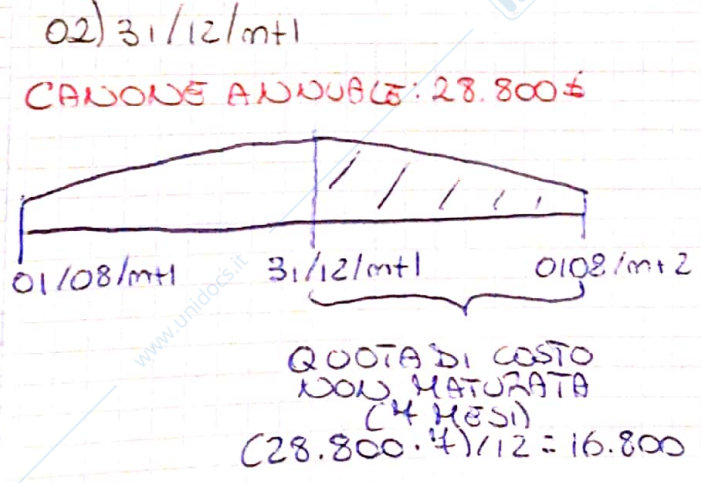 02) 31/12/m+1
CANONE ANNUALE: 28.800€
01/08/m+1 31/12/m+1 0108/m+2
QUOTA DI COSTO
NON MATURATA
(7 MESI)
(28.800.7)/12 = 16.800
www.unidocs.it